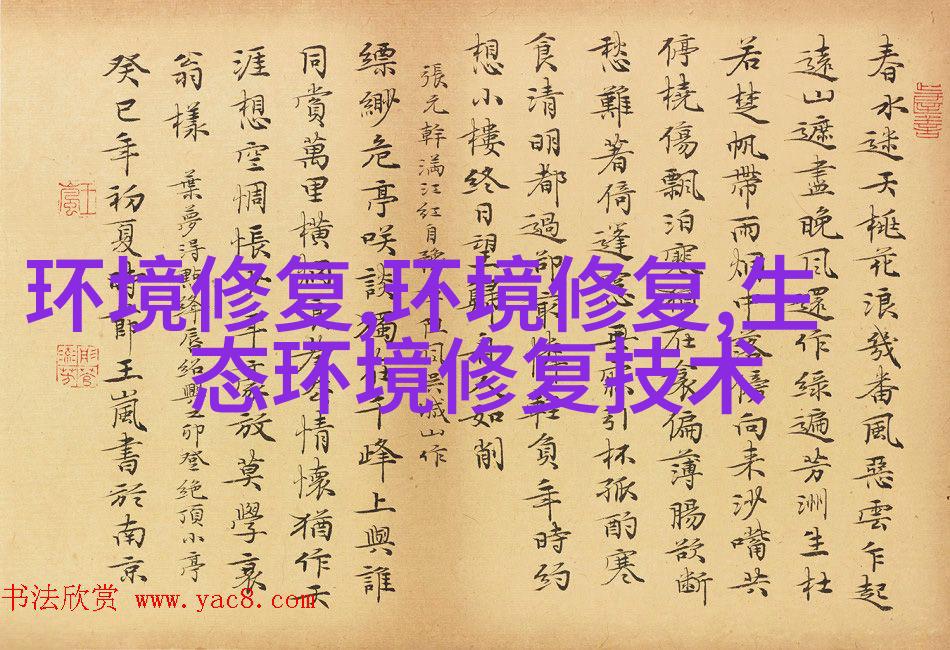 环境修复,环境修复,生
态环境修复技术
春水迷天桃花浪幾番風惡雲乍起
遠山遮盡晚風還作綠遍芳洲生杜
若楚帆帶雨烟中落傍向来沙嘴共
停橈傷飄泊寒在衾偏薄腸欲斷
愁難著倚蓬窗寐引杯孤酌寒
食清明都過卻最憐輕負年時約
想小樓終日望歸舟人如削
張元幹滿江紅自豫章阻風吳城山作
縹緲危亭咲談獨在千峰上與誰
同賞萬里橫烟浪情懷猶作天
涯想空惆悵少年豪放莫學衰
翁樣 葉夢得點絳唇紹興乙卯登絕頂小亭
癸巳年初夏時節王嵐書於南京
书法欣赏 www.yac8.com